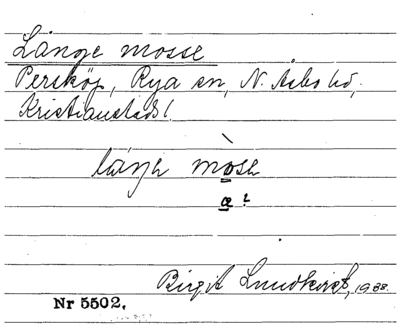 Långe mosse
Persköp, Rya sn, N. Åsbo hd,
Kristianstads l
långe mòse
œ ?
Birgit Lundkvist, 1938.
Nr 5502.